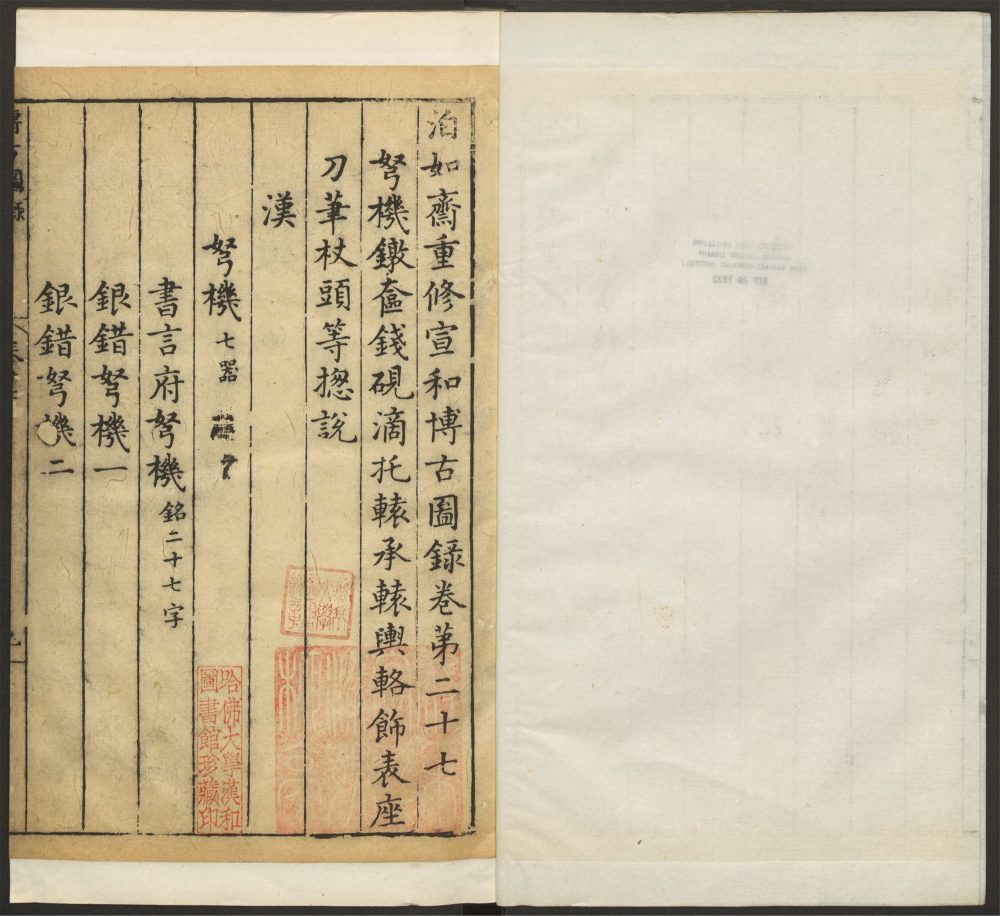 泊如齋重修宣和博古圖錄卷第二十七
弩機鐓奩錢硯滴托轅承轅輿輅飾表座
刀筆杖頭等摠說
漢
弩機 七器
書言府弩機 銘二十七字
銀錯弩機一
銀錯弩機二
哈佛大學漢和
圖書館珍藏印